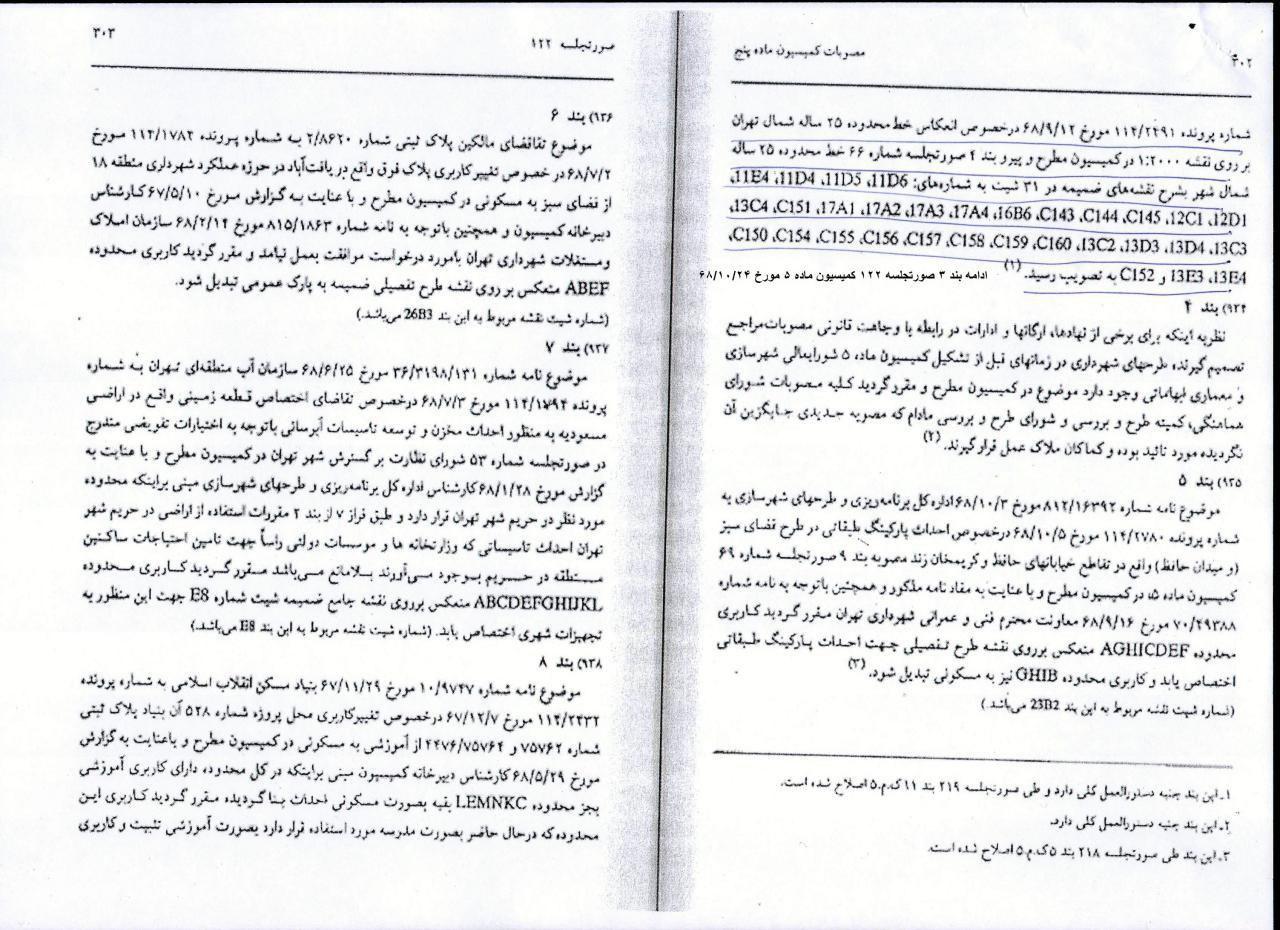 ۴۰۲
مصوبات کمیسیون ماده پنج
شماره پرونده ۱۱۴/۲۴۹۱ مورخ ۶۸/۹/۱۲ درخصوص انعکاس خط محدوده ۲۵ ساله شمال تهران
بر روی نقشه ۱:۲۰۰۰ در کمیسیون مطرح و پیرو بند ۴ صورتجلسه شماره ۶۶ خط محدوده ۲۵ ساله
شمال شهر بشرح نقشه‌های ضمیمه در ۳۱ شیت به شماره‌های: 11D6، 11D5، 11D4، 11E4،
12D1، 12C1، C145، C144، C143، 16B6، 17A4، 17A3، 17A2، 17A1، C151، 13C4،
13C3، 13D4، 13D3، 13C2، C160، C159، C158، C157، C156، C155، C154، C150،
13E4، 13E3 و C152 به تصویب رسید. (۱) ادامه بند ۳ صورتجلسه ۱۲۲ کمیسیون ماده ۵ مورخ ۶۸/۱۰/۲۴
۹۳۴) بند ۴
نظر به اینکه برای برخی از نهادها، ارگانها و ادارات در رابطه با وجاهت قانونی مصوبات مراجع
تصمیم گیرنده طرحهای شهرداری در زمانهای قبل از تشکیل کمیسیون ماده ۵ شورایعالی شهرسازی
و معماری ابهاماتی وجود دارد موضوع در کمیسیون مطرح و مقرر گردید کلیه مصوبات شورای
هماهنگی، کمیته طرح و بررسی و شورای طرح و بررسی مادام که مصوبه جدیدی جایگزین آن
نگردیده مورد تائید بوده و کماکان ملاک عمل قرار گیرند. (۲)
۹۳۵) بند ۵
موضوع نامه شماره ۸۱۲/۱۶۳۹۲ مورخ ۶۸/۱۰/۳ اداره کل برنامه‌ریزی و طرحهای شهرسازی به
شماره پرونده ۱۱۴/۲۷۸۰ مورخ ۶۸/۱۰/۵ درخصوص احداث پارکینگ طبقاتی در طرح فضای سبز
(و میدان حافظ) واقع در تقاطع خیابانهای حافظ و کریمخان زند مصوبه بند ۹ صورتجلسه شماره ۶۹
کمیسیون ماده ۵، در کمیسیون مطرح و با عنایت به مفاد نامه مذکور و همچنین باتوجه به نامه شماره
۷۰/۴۹۳۸۸ مورخ ۶۸/۹/۱۶ معاونت محترم فنی و عمرانی شهرداری تهران مقرر گردید کاربری
محدوده AGHICDEF منعکس برروی نقشه طرح تفصیلی جهت احداث پارکینگ طبقاتی
اختصاص یابد و کاربری محدوده GHIB نیز به مسکونی تبدیل شود. (۳)
(شماره شیت نقشه مربوط به این بند 23B2 می‌باشد.)
۱ـ این بند جنبه دستورالعمل کلی دارد و طی صورتجلسه ۲۱۹ بند ۱۱ ک.م.۵ اصلاح شده است.
۲ـ این بند جنبه دستورالعمل کلی دارد.
۳ـ این بند طی صورتجلسه ۲۱۸ بند ۵ ک.م.۵ اصلاح شده است.
صورتجلسه ۱۲۲
۴۰۳
۹۳۶) بند ۶
موضوع تقاضای مالکین پلاک ثبتی شماره ۲/۸۶۲۰ به شماره پرونده ۱۱۴/۱۷۸۲ مورخ
۶۸/۷/۲ در خصوص تغییر کاربری پلاک فوق واقع در یافت‌آباد در حوزه عملکرد شهرداری منطقه ۱۸
از فضای سبز به مسکونی در کمیسیون مطرح و با عنایت به گزارش مورخ ۶۷/۵/۱۰ کارشناس
دبیرخانه کمیسیون و همچنین باتوجه به نامه شماره ۸۱۵/۱۸۶۳ مورخ ۶۸/۲/۱۴ سازمان املاک
ومستغلات شهرداری تهران بامورد درخواست موافقت بعمل نیامد و مقرر گردید کاربری محدوده
ABEF منعکس بر روی نقشه طرح تفصیلی ضمیمه به پارک عمومی تبدیل شود.
(شماره شیت نقشه مربوط به این بند 26B3 می‌باشد.)
۹۳۷) بند ۷
موضوع نامه شماره ۳۶/۳۱۹۸/۱۳۱ مورخ ۶۸/۶/۲۵ سازمان آب منطقه‌ای تهران به شماره
پرونده ۱۱۴/۱۷۹۴ مورخ ۶۸/۷/۳ درخصوص تقاضای اختصاص قطعه زمینی واقع در اراضی
مسعودیه به منظور احداث مخزن و توسعه تاسیسات آبرسانی باتوجه به اختیارات تفویضی مندرج
در صورتجلسه شماره ۵۳ شورای نظارت بر گسترش شهر تهران در کمیسیون مطرح و با عنایت به
گزارش مورخ ۶۸/۱/۲۸ کارشناس اداره کل برنامه‌ریزی و طرحهای شهرسازی مبنی براینکه محدوده
مورد نظر در حریم شهر تهران قرار دارد و طبق فراز ۷ از بند ۲ مقررات استفاده از اراضی در حریم شهر
تهران احداث تاسیساتی که وزارتخانه ها و موسسات دولتی راساً جهت تامین احتیاجات ساکنین
منطقه در حریم بوجود می‌آورند بلامانع می‌باشد مقرر گردید کاربری محدوده
ABCDEFGHIJKL منعکس برروی نقشه جامع ضمیمه شیت شماره E8 جهت این منظور به
تجهیزات شهری اختصاص یابد. (شماره شیت نقشه مربوط به این بند E8 می‌باشد.)
۹۳۸) بند ۸
موضوع نامه شماره ۱۰/۹۷۴۷ مورخ ۶۷/۱۱/۲۹ بنیاد مسکن انقلاب اسلامی به شماره پرونده
۱۱۴/۲۴۳۲ مورخ ۶۷/۱۲/۷ درخصوص تغییرکاربری محل پروژه شماره ۵۲۸ آن بنیاد پلاک ثبتی
شماره ۷۵۷۶۲ و ۴۴۷۶/۷۵۷۶۴ از آموزشی به مسکونی در کمیسیون مطرح و باعنایت به گزارش
مورخ ۶۸/۵/۲۹ کارشناس دبیرخانه کمیسیون مبنی براینکه در کل محدوده، دارای کاربری آموزشی
بجز محدوده LEMNKC بقیه بصورت مسکونی احداث بنا گردیده مقرر گردید کاربری این
محدوده که درحال حاضر بصورت مدرسه مورد استفاده قرار دارد بصورت آموزشی تثبیت و کاربری